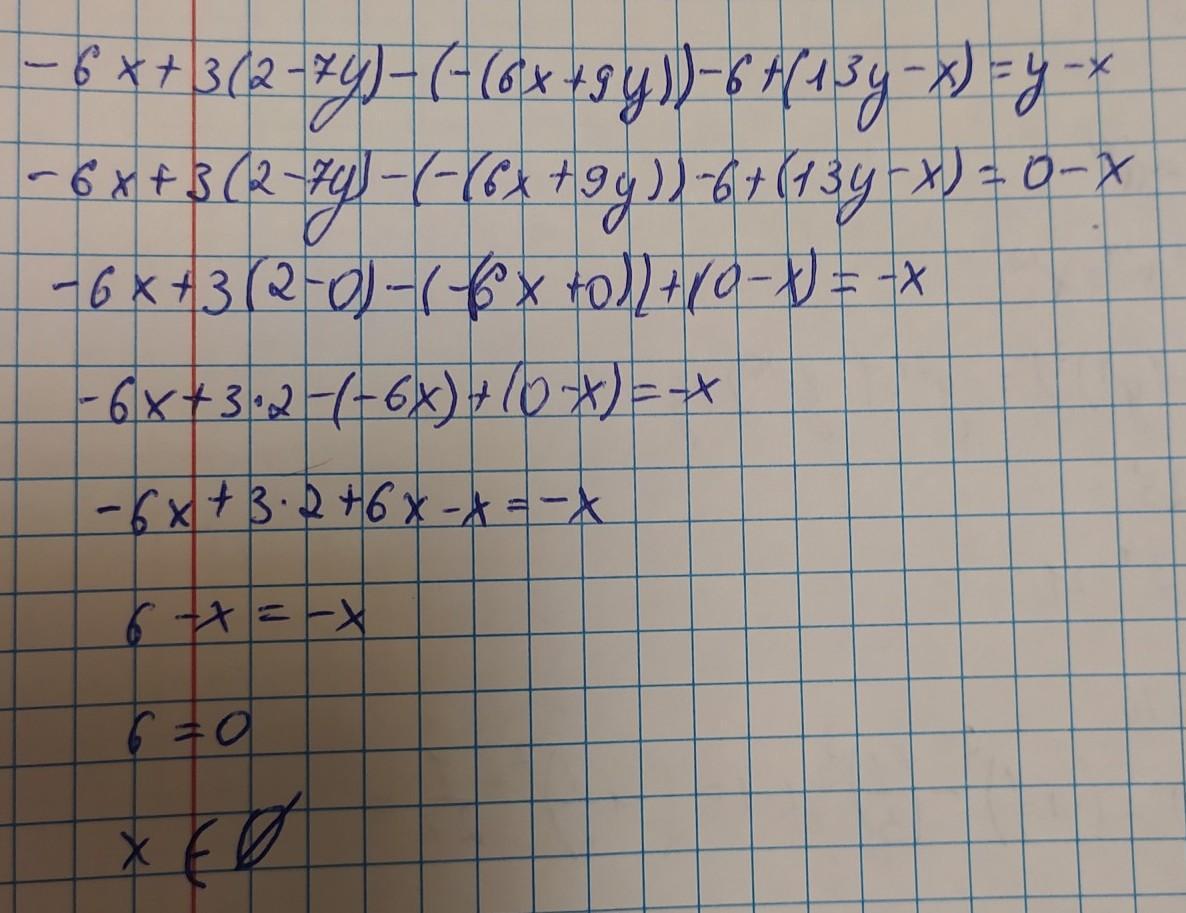 -6x+3(2-7y)-(-(6x+9y))-6+(13y-x)=y-x
-6x+3(2-7y)-(-(6x+9y))-6+(13y-x)=0-x
-6x+3(2-0)-(-(6x+0))+(0-x)=-x
-6x+3·2-(-6x)+(0-x)=-x
-6x+3·2+6x-x=-x
6-x=-x
6=0
x∈∅